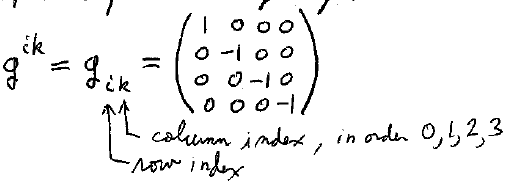 g^{ik} = g_{ik} = \begin{pmatrix} 1 & 0 & 0 & 0 \\ 0 & -1 & 0 & 0 \\ 0 & 0 & -1 & 0 \\ 0 & 0 & 0 & -1 \end{pmatrix}
column index, in order 0,1,2,3
row index